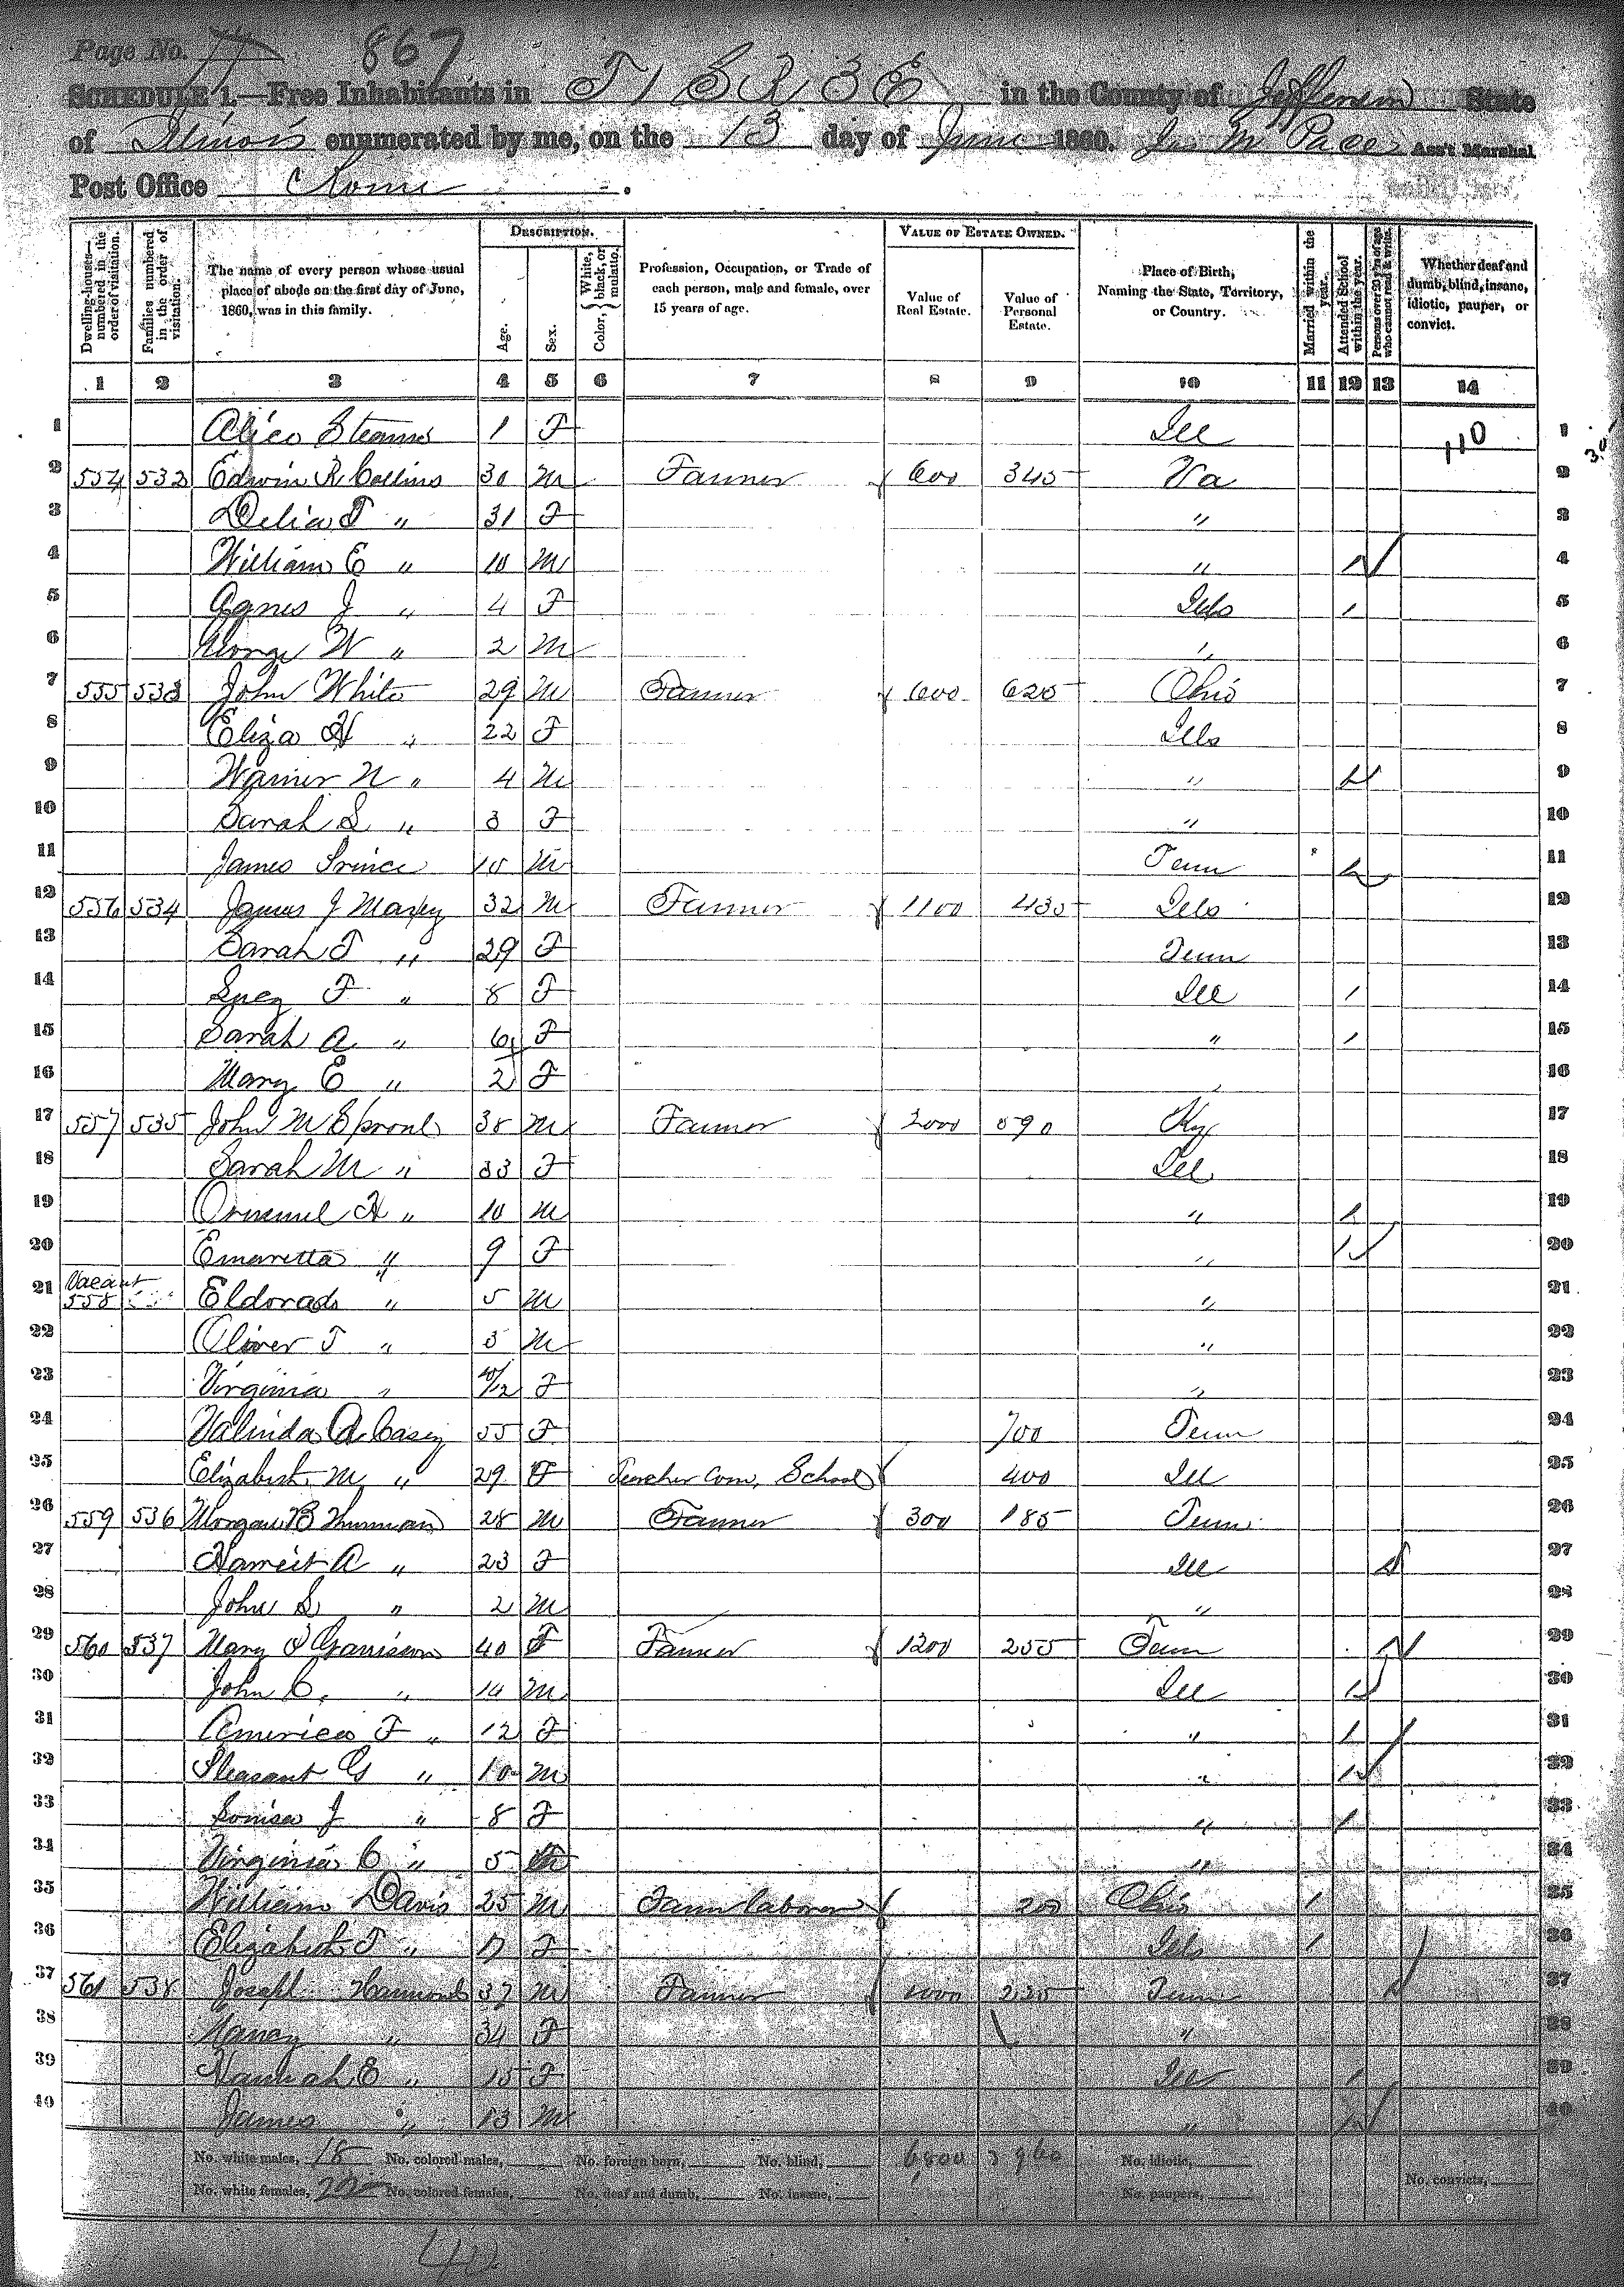 Page No. 77 867
SCHEDULE 1.—Free Inhabitants in T 1 S R 3 E in the County of Jefferson State
of Illinois enumerated by me, on the 13 day of June 1860. Jno M Pace Ass't Marshal
Post Office Rome.
Dwelling-houses—numbered in the order of visitation. Families numbered in the order of visitation. The name of every person whose usual place of abode on the first day of June, 1860, was in this family. DESCRIPTION. Age. Sex. Color, { White, black, or mulatto. Profession, Occupation, or Trade of each person, male and female, over 15 years of age. VALUE OF ESTATE OWNED. Value of Real Estate. Value of Personal Estate. Place of Birth, Naming the State, Territory, or Country. Married within the year. Attended School within the year. Persons over 20 y'rs of age who cannot read & write. Whether deaf and dumb, blind, insane, idiotic, pauper, or convict.
1 2 3 4 5 6 7 8 9 10 11 12 13 14
1 Alice Stearns 1 F Ill 110 1
2 554 532 Edwin R. Collins 30 M Farmer 600 345 Va 2
3 Delia T " 31 F " 3
4 William E " 10 M " / 4
5 Agnes J " 4 F Ills / 5
6 George W " 2 M " 6
7 555 533 John White 29 M Farmer 600 625 Ohio 7
8 Eliza H " 22 F Ills 8
9 Warner N " 4 M " / 9
10 Sarah S " 3 F " 10
11 James Prince 10 M Tenn / 11
12 556 534 James J Maxey 32 M Farmer 1100 435 Ills 12
13 Sarah T " 29 F Tenn 13
14 F " 8 F Ill / 14
15 Sarah A " 6 F " / 15
16 Mary E " 2 F " 16
17 557 535 John M Sproul 38 M Farmer 2000 590 Ky 17
18 Sarah M " 33 F Ill 18
19 H " 10 M " / 19
20 Emaretta " 9 F " / 20
21 Vacant 558 Eldorado " 5 M " 21
22 Oliver T " 3 M " 22
23 Virginia " 10/12 F " 23
24 Malinda A Casey 55 F 700 Tenn 24
25 Elizabeth M " 29 F Teacher Com. School 400 Ill 25
26 559 536 Morgan B Thurman 28 M Farmer 300 185 Tenn 26
27 Harriet A " 23 F Ill / 27
28 John S " 2 M " 28
29 560 537 Mary Garrison 40 F Farmer 1200 255 Tenn / 29
30 John C. " 14 M Ill / 30
31 America F " 12 F " / 31
32 Pleasant G " 10 M " / 32
33 Louisa J " 8 F " / 33
34 Virginia C " 5 " 34
35 William Davis 25 M Farm laborer 200 Ohio / 35
36 Elizabeth T " 17 F Ills / 36
37 561 538 Joseph Hammonds 37 M Farmer 1000 225 Tenn / 37
38 Nancy " 34 F " 38
39 Hannah E " 15 F Ill / 39
40 James " 13 M " / 40
No. white males, 18 No. colored males, No. foreign born, No. blind, 6800 3960 No. idiotic,
No. white females, 22 No. colored females, No. deaf and dumb, No. insane, No. paupers, No. convicts,
40